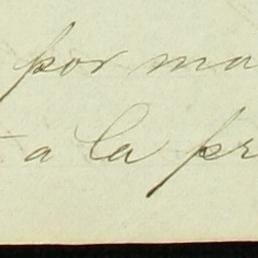 por ma
a la pr